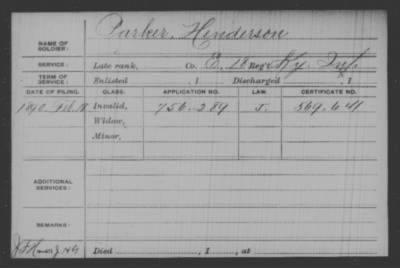 Parker, Henderson
NAME OF SOLDIER:
SERVICE: Late rank, Co. E, 18 Reg't Ky. Inf.
TERM OF SERVICE: Enlisted , 1 Discharged , 1
DATE OF FILING. CLASS. APPLICATION NO. LAW. CERTIFICATE NO.
1890 Invalid, 756.289 J. 569.641
Widow,
Minor,
ADDITIONAL SERVICES:
REMARKS:
Died , 1 , at